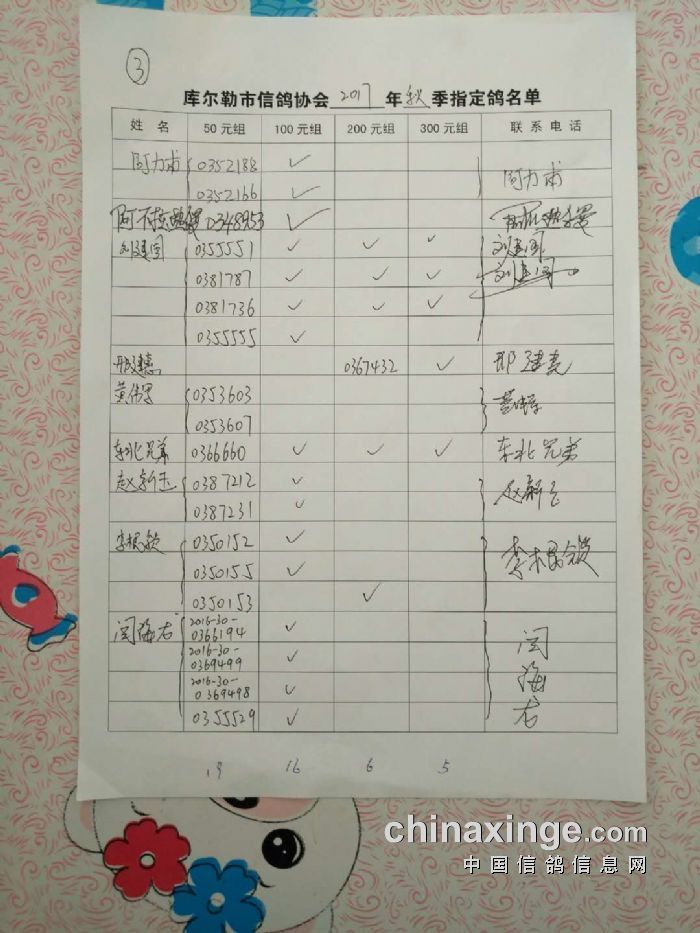 ③
库尔勒市信鸽协会 2017 年 秋 季指定鸽名单
姓 名 50元组 100元组 200元组 300元组 联系电话
阿力甫 0352188 ✓ 阿力甫
0352166 ✓
0348953 ✓
刘建国 0355551 ✓ ✓ ✓ 刘建国
0381787 ✓ ✓ ✓ 刘建国
0381736 ✓ ✓ ✓
0355555 ✓
0367432 ✓ 邢建
黄伟 0353603
0353607
东北兄弟 0366660 ✓ ✓ ✓ 东北兄弟
赵新玉 0387212 ✓ 赵新玉
0387231 ✓
李根锁 0350152 ✓ 李根锁
0350155 ✓
0350153 ✓
闫海右 2016-30-0366194 ✓ 闫海右
2016-30-0369499 ✓
2016-30-0369498 ✓
0355529 ✓
19 16 6 5
chinaxinge.com
中国信鸽信息网